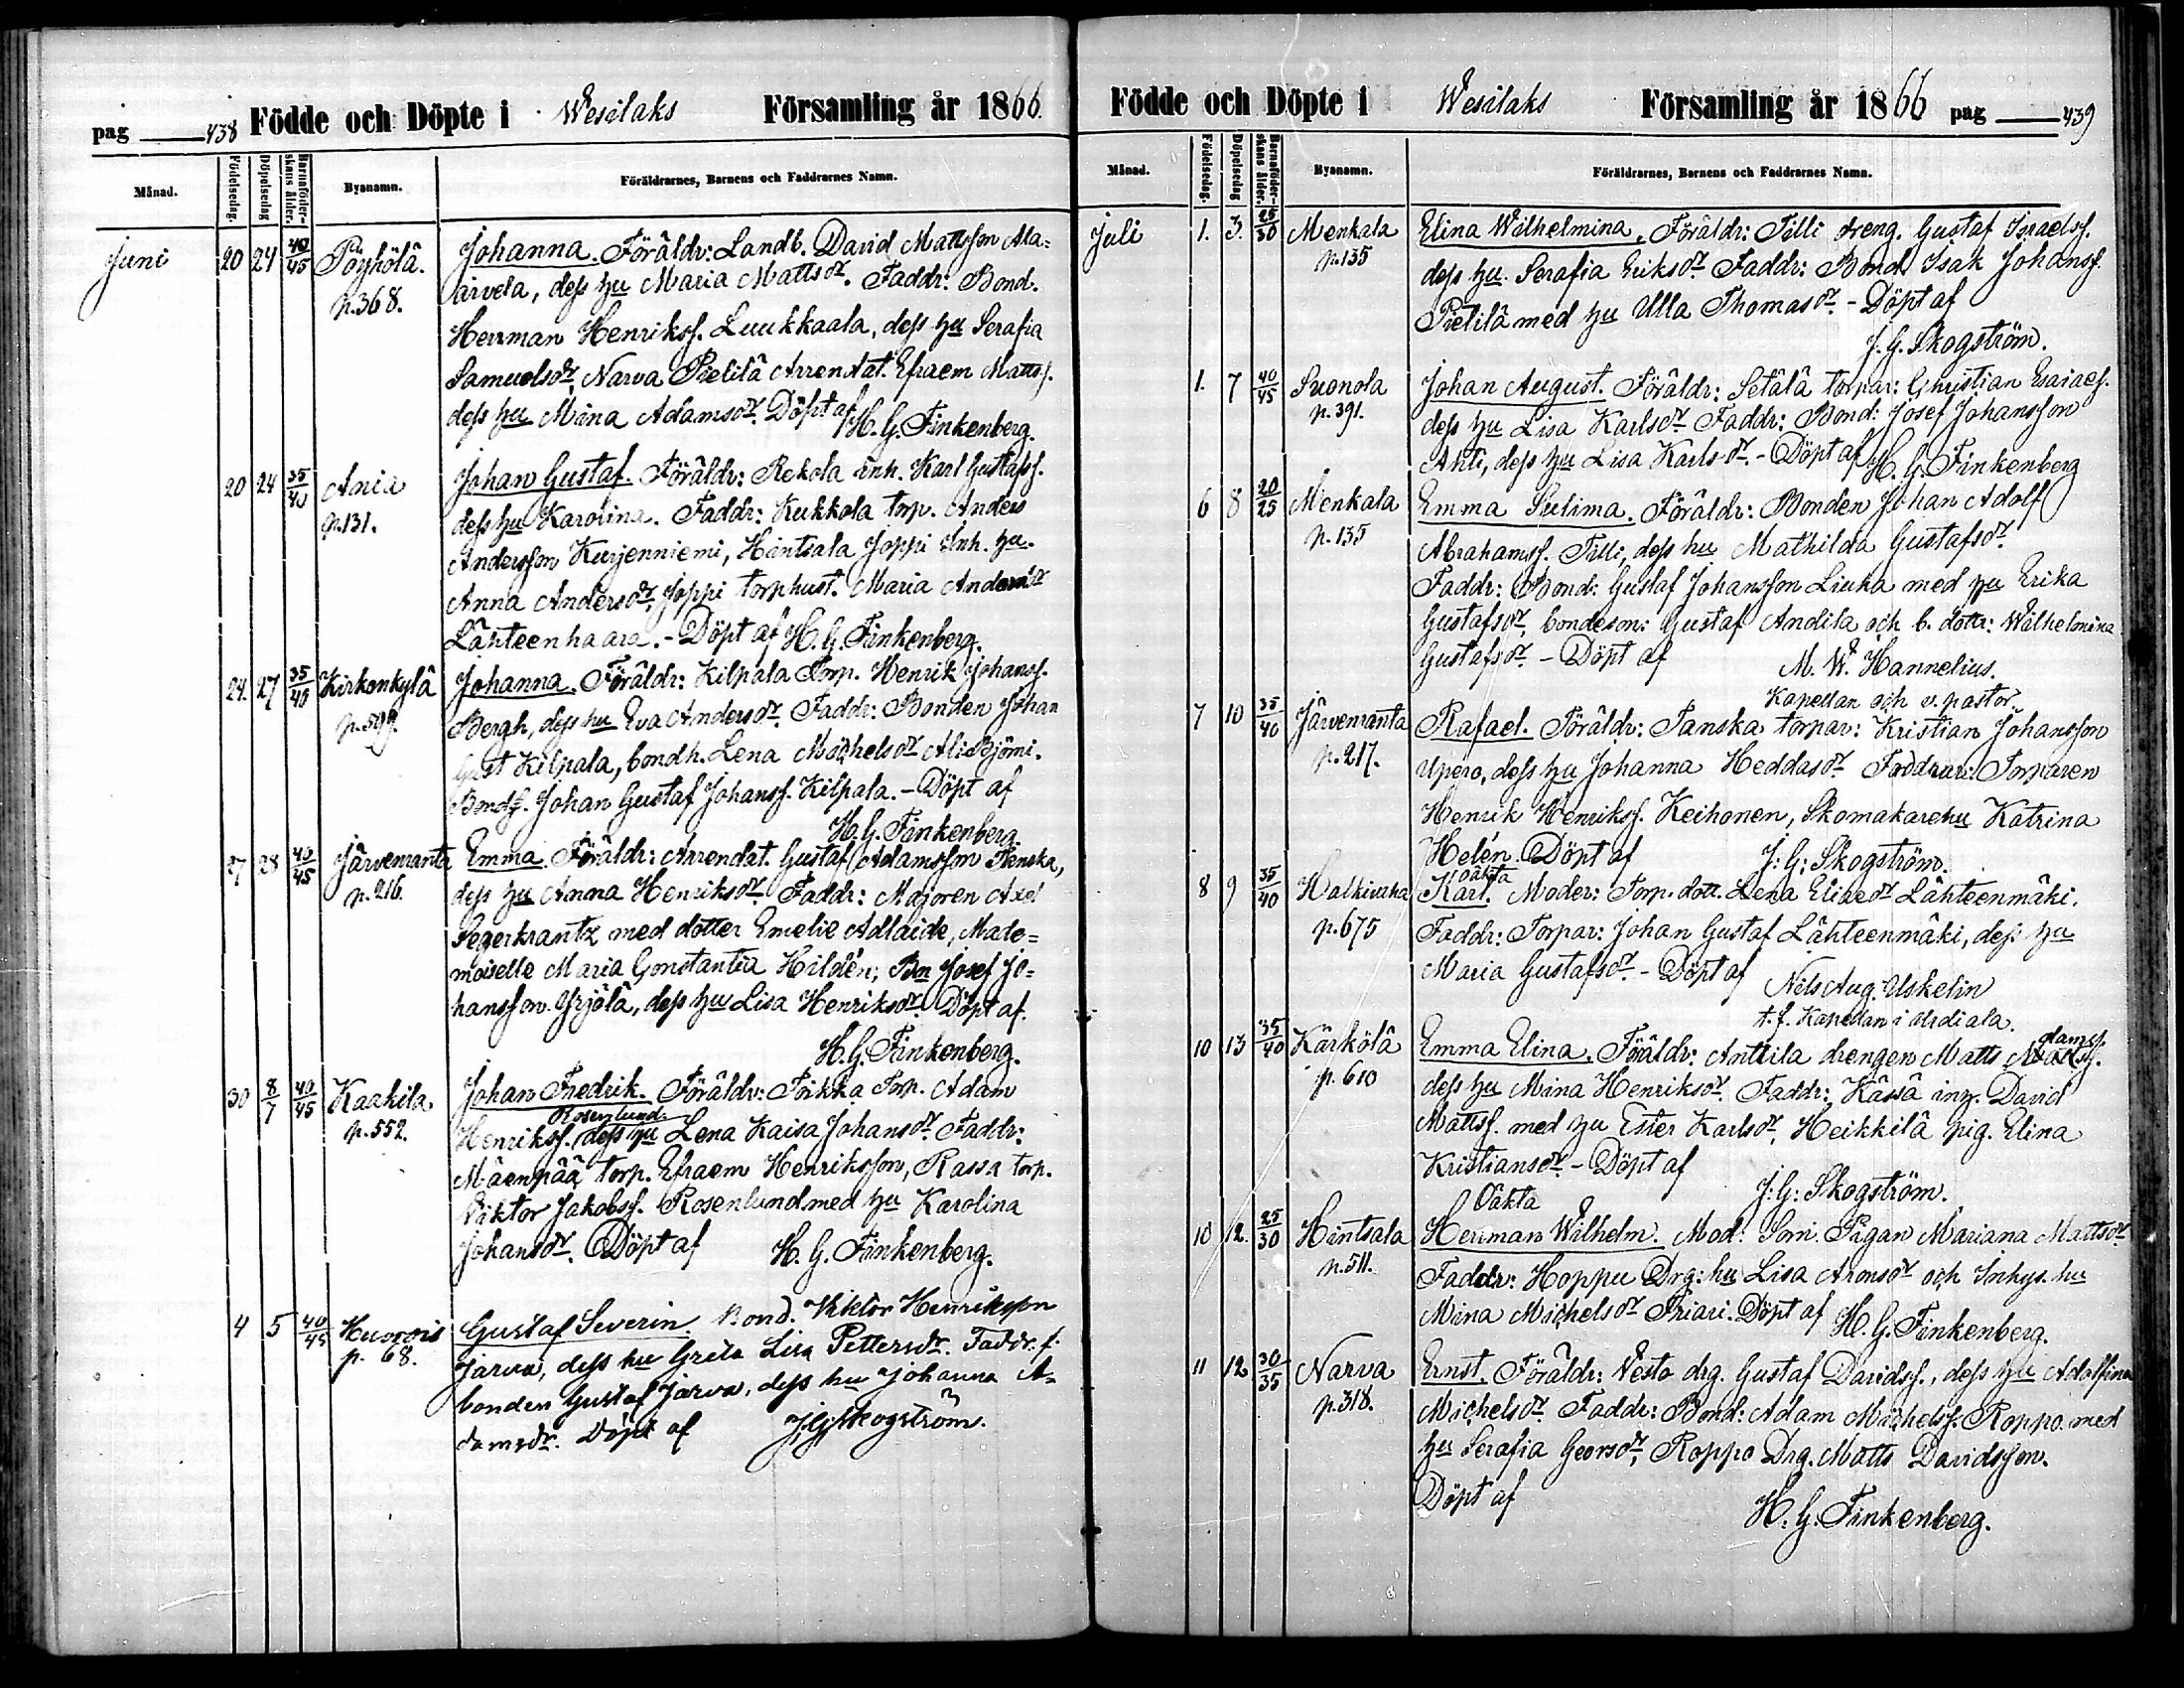 pag 438 Födde och Döpte i Wesilaks Församling år 1866.
Månad. Födelsedag. Döpelsedag Barnaföderskans ålder. Byanamn. Föräldrarnes, Barnens och Faddrarnes Namn.
Juni 20 24 40/45 Pöyhölä. Johanna. Föräldr: Landb. David Mattsson Ala=
p. 368. järvela, dess hu Maria Mattsdr. Faddr: Bond.
Herrman Henrikss. Luukkaala, dess hu Serafia
Samuelsdr, Narva Pietilä Arrendat. Efraem Matts.
dess hu Mina Adamsdr. Döpt af
H. G. Finkenberg.
20 24 35/40 Ania Johan Gustaf. Föräldr: Rekola inh. Karl Gustafss.
p. 131. dess hu Karolina. Faddr: Kukkola torp. Anders
Andersson Kurjenniemi, Hintsala Joppi Inh. hu.
Anna Andersdr, Joppi torphust. Maria Andersdr
Lähteenhaara. - Döpt af H. G. Finkenberg.
24. 27 35/40 Kirkonkylä Johanna. Föräldr: Kilpala Torp. Henrik Johanss.
p. 599. Bergh, dess hu Eva Andersdr. Faddr: Bonden Johan
Gust Kilpala, bondh. Lena Michelsdr Ali
Bonds. Johan Gustaf Johanss. Kilpala. - Döpt af
H. G. Finkenberg.
27 28 40/45 Järvenranta Emma. Föräldr: Arrendat. Gustaf Adamsson Tanska,
p. 216. dess hu Anna Henriksdr. Faddr: Majoren Axel
Segerkrantz med dotter Emelie Adlaide, Made=
moiselle Maria Constantia Hildén; Bn Josef Jo=
hansson Yrjölä, dess hu Lisa Henriksdr. Döpt af.
H. G. Finkenberg.
30 8/7 40/45 Kaakila Johan Fredrik. Föräldr: Torkka Torp. Adam
Rosenlund
p. 552. Henrikss. dess hu Lena Kaisa Johansdr. Faddr:
Mäenpää torp. Efraem Henriksson, Rassa torp.
Viktor Jakobss. Rosenlund med hu Karolina
Johansdr. Döpt af H. G. Finkenberg.
4 5 40/45 Huorois Gustaf Severin. Bond. Viktor Henriksson
p. 68. Jarva, dess hu Greta Lisa Pettersdr. Faddr. f.
bonden Gustaf Jarva, dess hu Johanna A=
damsdr. Döpt af J. G. Skogström.
Födde och Döpte i Wesilaks Församling år 1866 pag 439
Månad. Födelsedag. Döpelsedag Barnaföderskans ålder. Byanamn. Föräldrarnes, Barnens och Faddrarnes Namn.
Juli 1. 3. 25/30 Menkala Elina Wilhelmina. Föräldr: Tilli dreng. Gustaf Israelss.
p. 135 dess hu. Serafia Eriksdr Faddr: Bond. Isak Johanss.
Pietilä med hu Ulla Thomasdr. - Döpt af
J. G. Skogström.
1. 7 40/45 Suonola Johan August. Föräldr: Setälä torpar: Christian Esaiass.
p. 391. dess hu Lisa Karlsdr Faddr: Bond: Josef Johansson
Ahti, dess hu Lisa Karlsdr. - Döpt af H. G. Finkenberg
6 8 20/25 Menkala Emma Sulima. Föräldr: Bonden Johan Adolf
p. 135 Abrahamss. Tilli, dess hu Mathilda Gustafsdr.
Faddr: Bond: Gustaf Johansson Liuha med hu Erika
Gustafsdr, bondeson: Gustaf Andila och b. dottr: Wilhelmina
Gustafsdr - Döpt af M. W. Hannelius.
Kapellan och v. pastor.
7 10 35/40 Järvenranta Rafael. Föräldr: Tanska torpar: Kristian Johansson
p. 217. Upero, dess hu Johanna Heddasdr Faddrar: Torparen
Henrik Henrikss. Keihonen, Skomakarehu Katrina
Helén. Döpt af J: G: Skogström.
oäkta
8 9 35/40 Halkivaha Karl. Moder: Torp. dott. Lena Eliaedr Lähteenmäki.
p. 675 Faddr: Torpar: Johan Gustaf Lähteenmäki, dess hu
Maria Gustafsdr. - Döpt af Nils Aug. Uskelin
t. f. Kapellan i Urdiala.
10 13 35/40 Kärkölä Emma Elina. Föräldr: Anttila drengen Matts Adamss.
p. 610 dess hu Mina Henriksdr. Faddr: Kässä inh. David
Mattss. med hu Ester Karlsdr, Heikkilä pig. Elina
Kristiansdr - Döpt af J: G: Skogström.
Oäkta
10 12. 25/30 Hintsala Herman Wilhelm. Mod: Somi. Pigan Mariana Mattsdr
p. 511. Faddr: Hoppu Drg: hu Lisa Aronsdr och Inhys. hu
Mina Michelsdr Friari. Döpt af H. G. Finkenberg.
11 12 30/35 Narva Ernst. Föräldr: Vesto drg. Gustaf Davidss., dess hu Adolfina
p. 318. Michelsdr Faddr: Bond: Adam Michelss. Roppo med
hu Serafia Georsdr, Roppo Drg. Matts Davidsson.
Döpt af
H. G. Finkenberg.